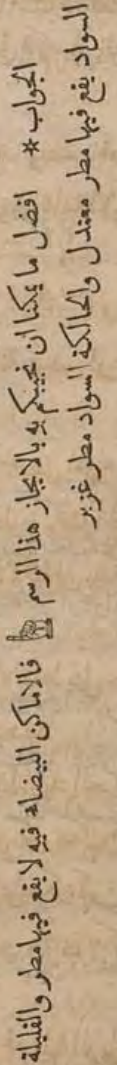 الجواب * افضل ما يمكنا ان نجيبكم به بالايجاز هذا الرسم ☜ فالاماكن البيضاء فيه لا يقع فيها مطر والقليلة
السواد يقع فيها مطر معتدل والحالكة السواد مطر غزير